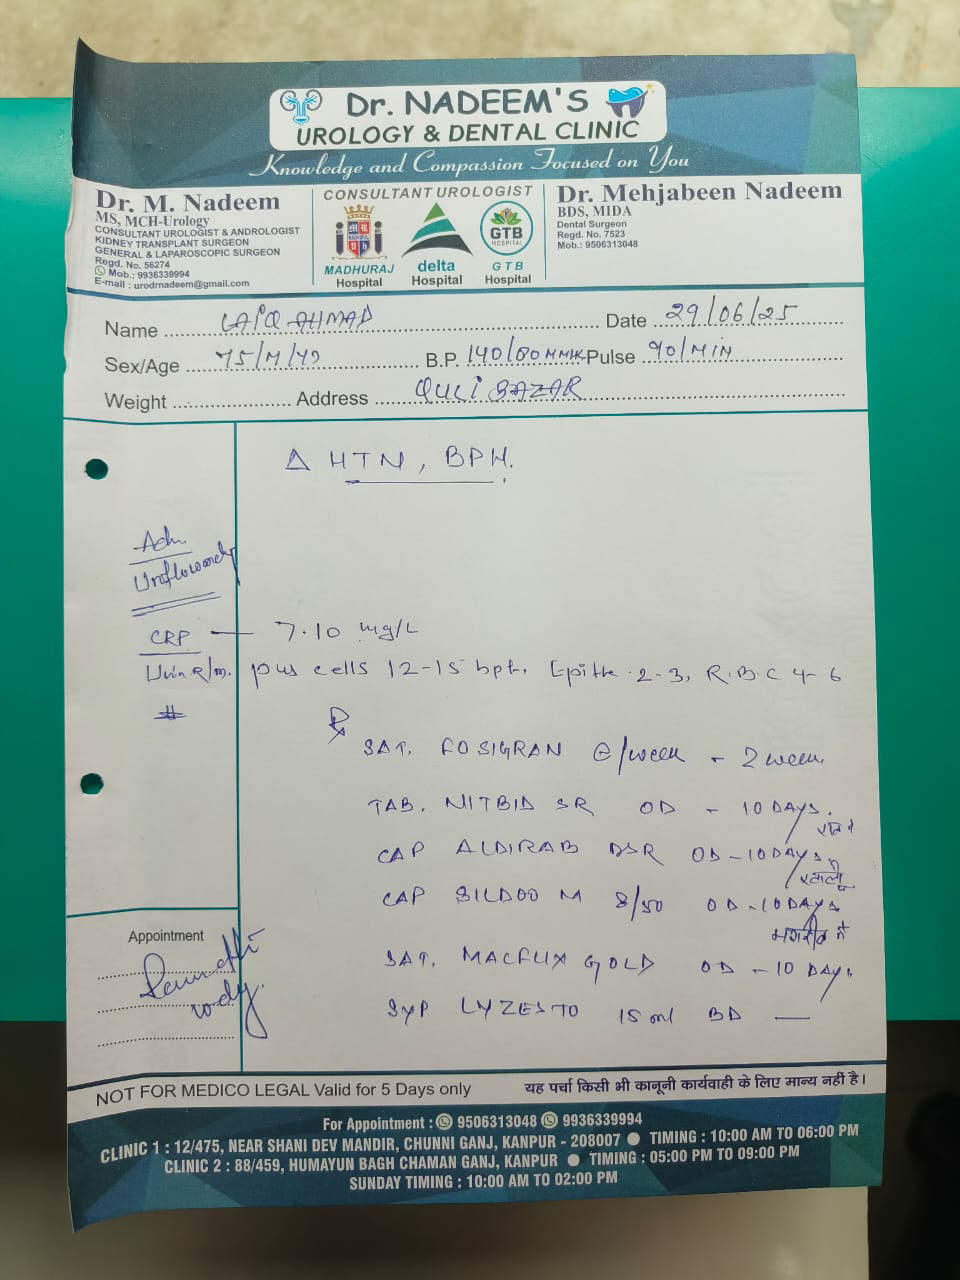 Dr. NADEEM'S
UROLOGY & DENTAL CLINIC
Knowledge and Compassion Focused on You
Dr. M. Nadeem
MS, MCH-Urology
CONSULTANT UROLOGIST & ANDROLOGIST
KIDNEY TRANSPLANT SURGEON
GENERAL & LAPAROSCOPIC SURGEON
Regd. No. 56274
Mob.: 9936339994
E-mail : urodrnadeem@gmail.com
CONSULTANT UROLOGIST
MADHURAJ
Hospital
delta
Hospital
GTB
HOSPITAL
GTB
Hospital
Dr. Mehjabeen Nadeem
BDS, MIDA
Dental Surgeon
Regd. No. 7523
Mob.: 9506313048
Name LAIQ AHMAD Date 29/06/25
Sex/Age 75/M/ B.P. 140/80 Pulse 90/MIN
Weight Address QULI BAZAR
Δ HTN, BPH.
Adv.
CRP — 7.10 mg/L
Urin R/m. pus cells 12-15 hpf, Epithe. 2-3, R.B.C 4-6
℞
SAT. FOSIGRAN /week - 2 week
TAB. NITBID SR OD - 10 DAYS.
रात में
CAP ALDIRAB DSR OD - 10 DAYS
CAP SILDOO M 8/50 OD - 10 DAYS
मगरीब में
SAT. MACFLIX GOLD OD - 10 DAYS
SYP LYZESTO 15 ml BD —
Appointment
NOT FOR MEDICO LEGAL Valid for 5 Days only
यह पर्चा किसी भी कानूनी कार्यवाही के लिए मान्य नहीं है।
For Appointment : 9506313048 9936339994
CLINIC 1 : 12/475, NEAR SHANI DEV MANDIR, CHUNNI GANJ, KANPUR - 208007 ● TIMING : 10:00 AM TO 06:00 PM
CLINIC 2 : 88/459, HUMAYUN BAGH CHAMAN GANJ, KANPUR ● TIMING : 05:00 PM TO 09:00 PM
SUNDAY TIMING : 10:00 AM TO 02:00 PM